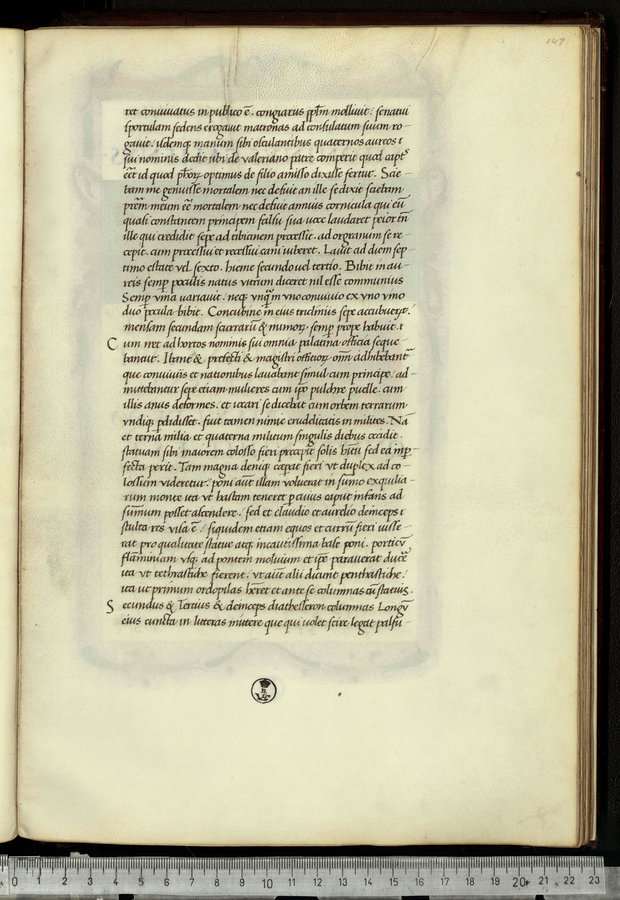 147
ret conviuatus in publico ē. congiariis ppl̄m molliuit: senatui
sportulam sedens erogauit matronas ad consulatum suum ro-
gauit. isdemq; manum sibi osculantibus quaternos aureos
sui nominis dedit ubi de valeriano patre comperit quod capt⁹
eēt id quod ph̄orꝝ optimus de filio amisso dixisse fertur. Scie-
bam me genuisse mortalem nec defuit an ille se dixit scietam
prēm meum eē mortalem nec defuit annius cornicula qui eū
quasi constantem principem falsu sua uoce laudaret peior tn̄
ille qui credidit sepe ad tibianem processit. ad orgranum se re-
cepit. cum processui et recessui cani iuberet. Lauit ad diem sep-
timo estate vel sexto. hieme secundo uel tertio. Bibit in au-
reis semp poculis natus vitrum diceret nil esse communius
Semp vina variauit. neq; vnq̄m vno conuiuio ex vno vino
duo pocula bibit. Concubine in eius tricliniis sepe accubuerꝭ.
mensam secundam scurrarū & mimorꝝ semp prope habuit.
Cum iret ad hortos nominis sui omnia palatina officia seque
bantur. Ibant & prefecti & magistri officiorꝝ omn̄ adhibebant
que conuiuiis et nationibus lauabant simul cum principe. ad-
mittebantur sepe etiam mulieres cum ip̄o pulchre puelle. cum
illis anus deformes. et iocari se dicebat cum orbem terrarum
vndiq; perdidisset. fuit tamen nimie crudelitatis in milites. Nā
et terna milia et quaterna militum singulis diebus occidit.
statuam sibi maiorem colosso fieri precepit solis hitū sed ea imp-
fecta perit. Tam magna deniq; ceperat fieri vt duplex ad co-
lossum videretur. poni aūt illam voluerat in sūmo exquilia-
rum monte ita vt hastam teneret p cuius caput infans ad
sūmum posset ascendere. sed et claudio et aurelio deinceps
stulta res visa ē. siquidem etiam equos et currū fieri iusse-
rat pro qualitate statue atq; incautissima base poni. porticū
flāminiam vsq; ad pontem moluium et ip̄e parauerat ducē
ita vt tethrastiche fierent. vt aūt alii dicunt penthastiche.
ita ut primum ordo pilas hēret et ante se columnas cū statuis.
Secundus & Tertius & deinceps diathesseron columnas Longū
eius cuncta in litteras mittere que qui uolet scire legat palfu-